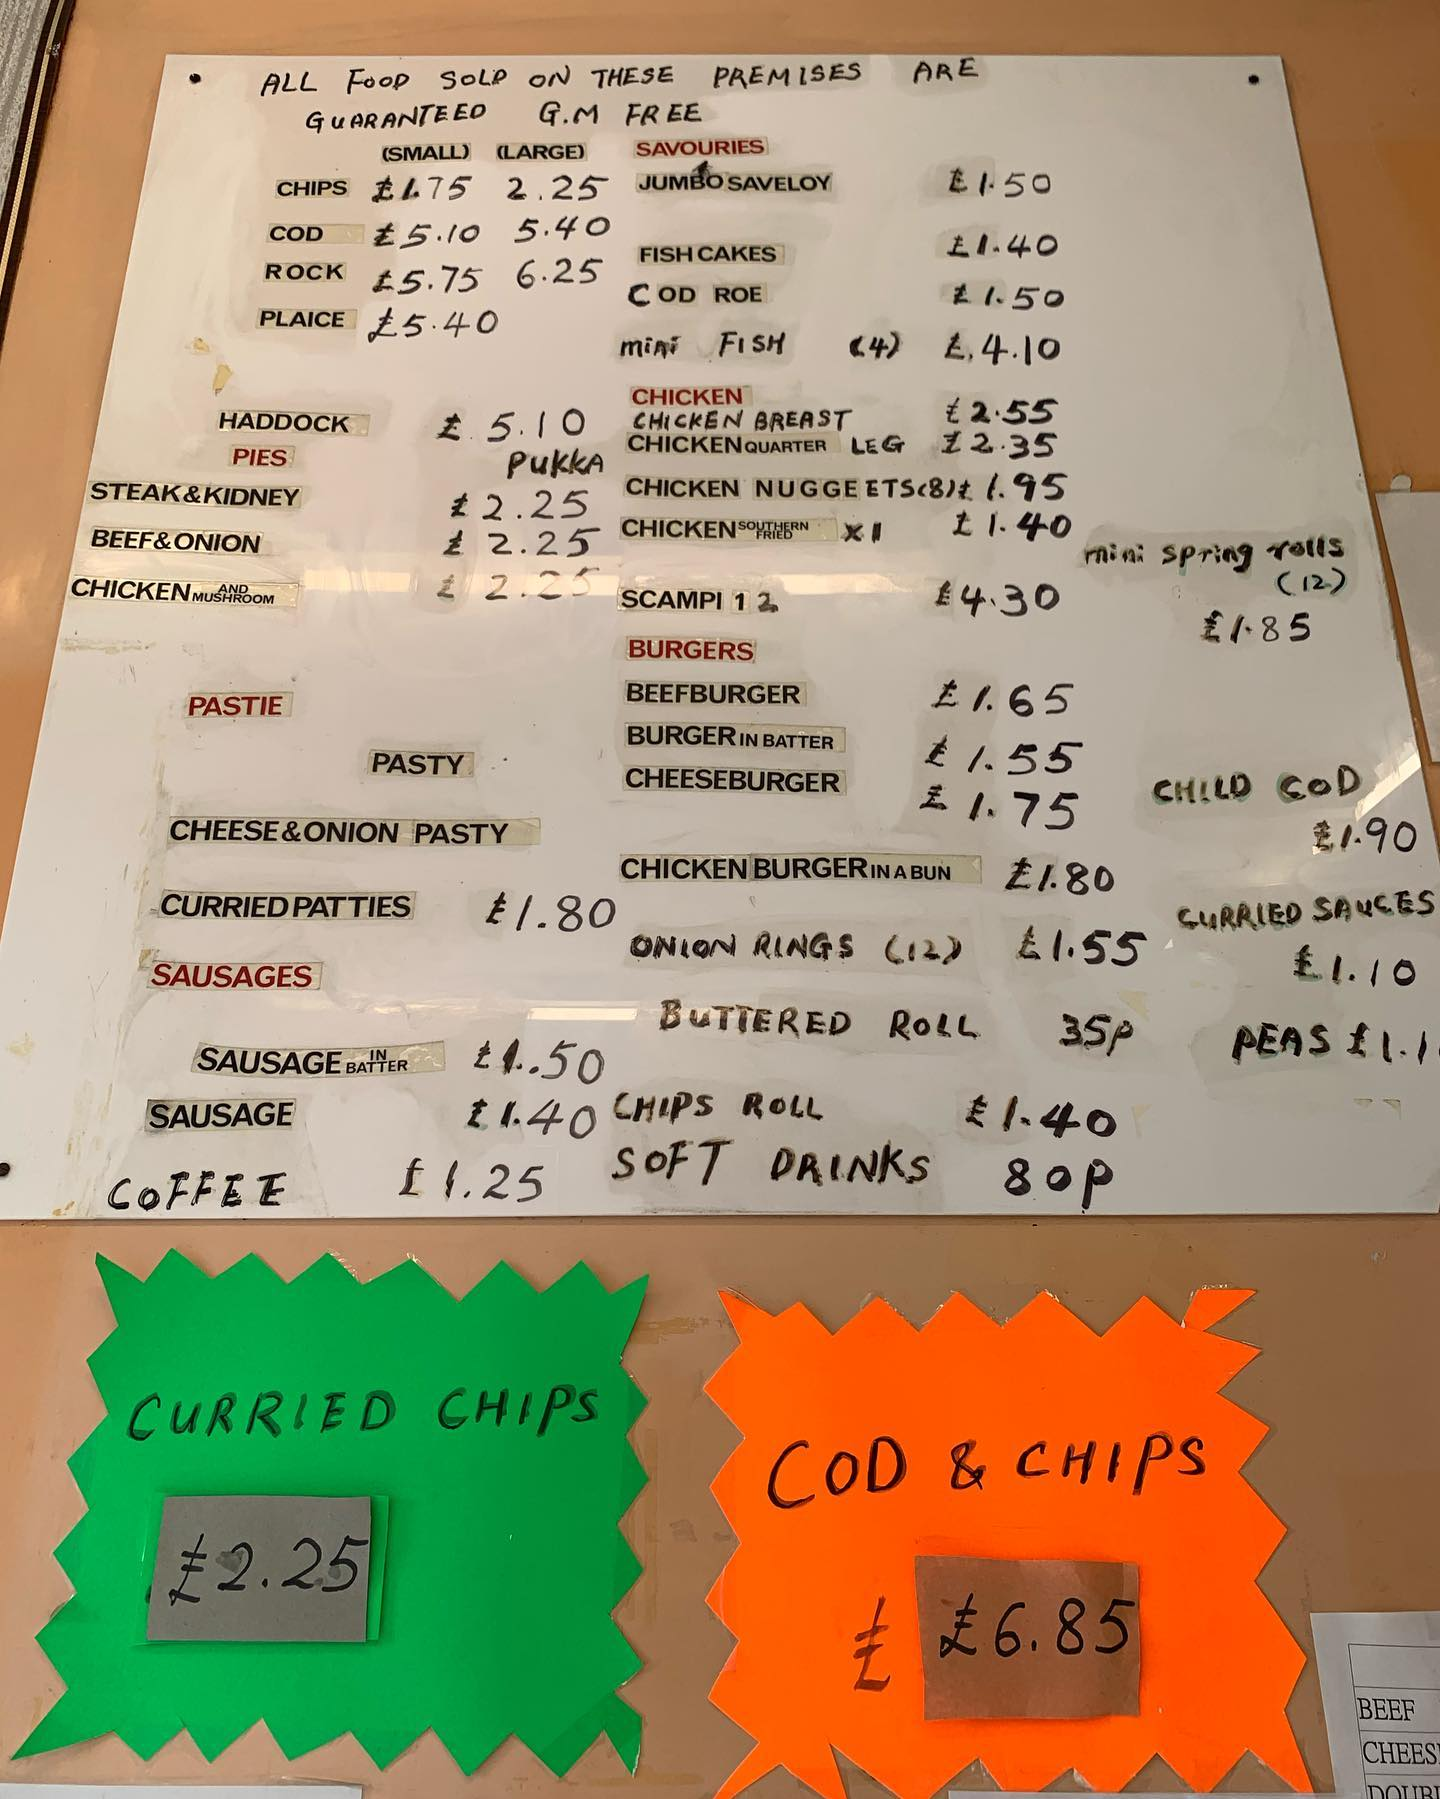 ALL FOOD SOLD ON THESE PREMISES ARE
GUARANTEED G.M FREE
(SMALL) (LARGE)
CHIPS £1.75 2.25
COD £5.10 5.40
ROCK £5.75 6.25
PLAICE £5.40
HADDOCK £5.10
PIES
PUKKA
STEAK&KIDNEY £2.25
BEEF&ONION £2.25
CHICKEN AND MUSHROOM £2.25
PASTIE
PASTY
CHEESE&ONION PASTY
CURRIED PATTIES £1.80
SAUSAGES
SAUSAGE IN BATTER £1..50
SAUSAGE £1.40
COFFEE £1.25
SAVOURIES
JUMBO SAVELOY £1.50
FISH CAKES £1.40
COD ROE £1.50
mini FISH (4) £.4.10
CHICKEN
CHICKEN BREAST £2.55
CHICKEN QUARTER LEG £2.35
CHICKEN NUGGEETS(8) £1.95
CHICKEN SOUTHERN FRIED X1 £1.40
SCAMPI 12 £4.30
BURGERS
BEEFBURGER £1.65
BURGER IN BATTER £1.55
CHEESEBURGER £1.75
CHICKEN BURGER IN A BUN £1.80
ONION RINGS (12) £1.55
BUTTERED ROLL 35p
CHIPS ROLL £1.40
SOFT DRINKS 80p
mini spring rolls
(12)
£1.85
CHILD COD
£1.90
CURRIED SAUCES
£1.10
PEAS
CURRIED CHIPS
£2.25
COD & CHIPS
£ £6.85
BEEF